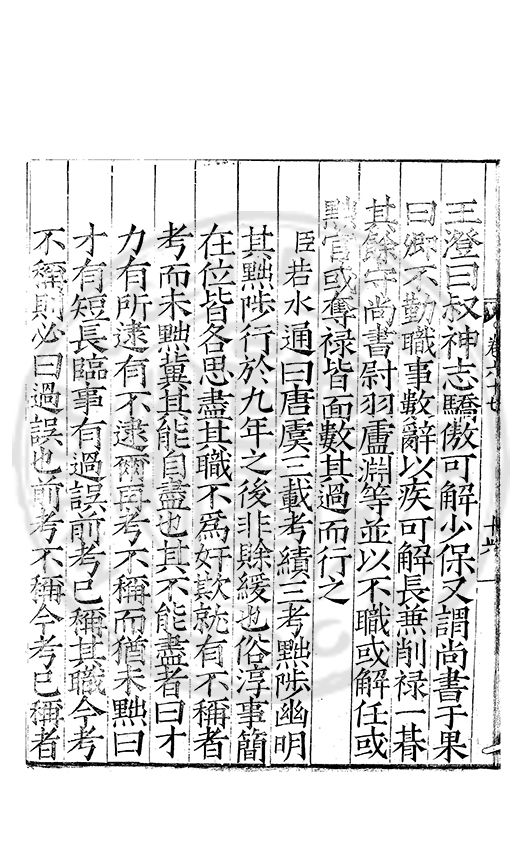 卷六十七
王澄曰叔神志驕傲可解少保又謂尚書于果
曰卿不勤職事數辭以疾可解長兼削禄一朞
其餘守尚書尉羽盧淵等並以不職或解任或
黜官或奪禄皆面數其過而行之
臣若水通曰唐虞三載考績三考黜陟幽明
其黜陟行於九年之後非賖緩也俗淳事簡
在位皆各思盡其職不為奸欺就有不稱者
考而未黜冀其能自盡也其不能盡者曰才
力有所逮有不逮爾再考不稱而猶未黜曰
才有短長臨事有過誤前考已稱其職今考
不稱則必曰過誤也前考不稱今考已稱者